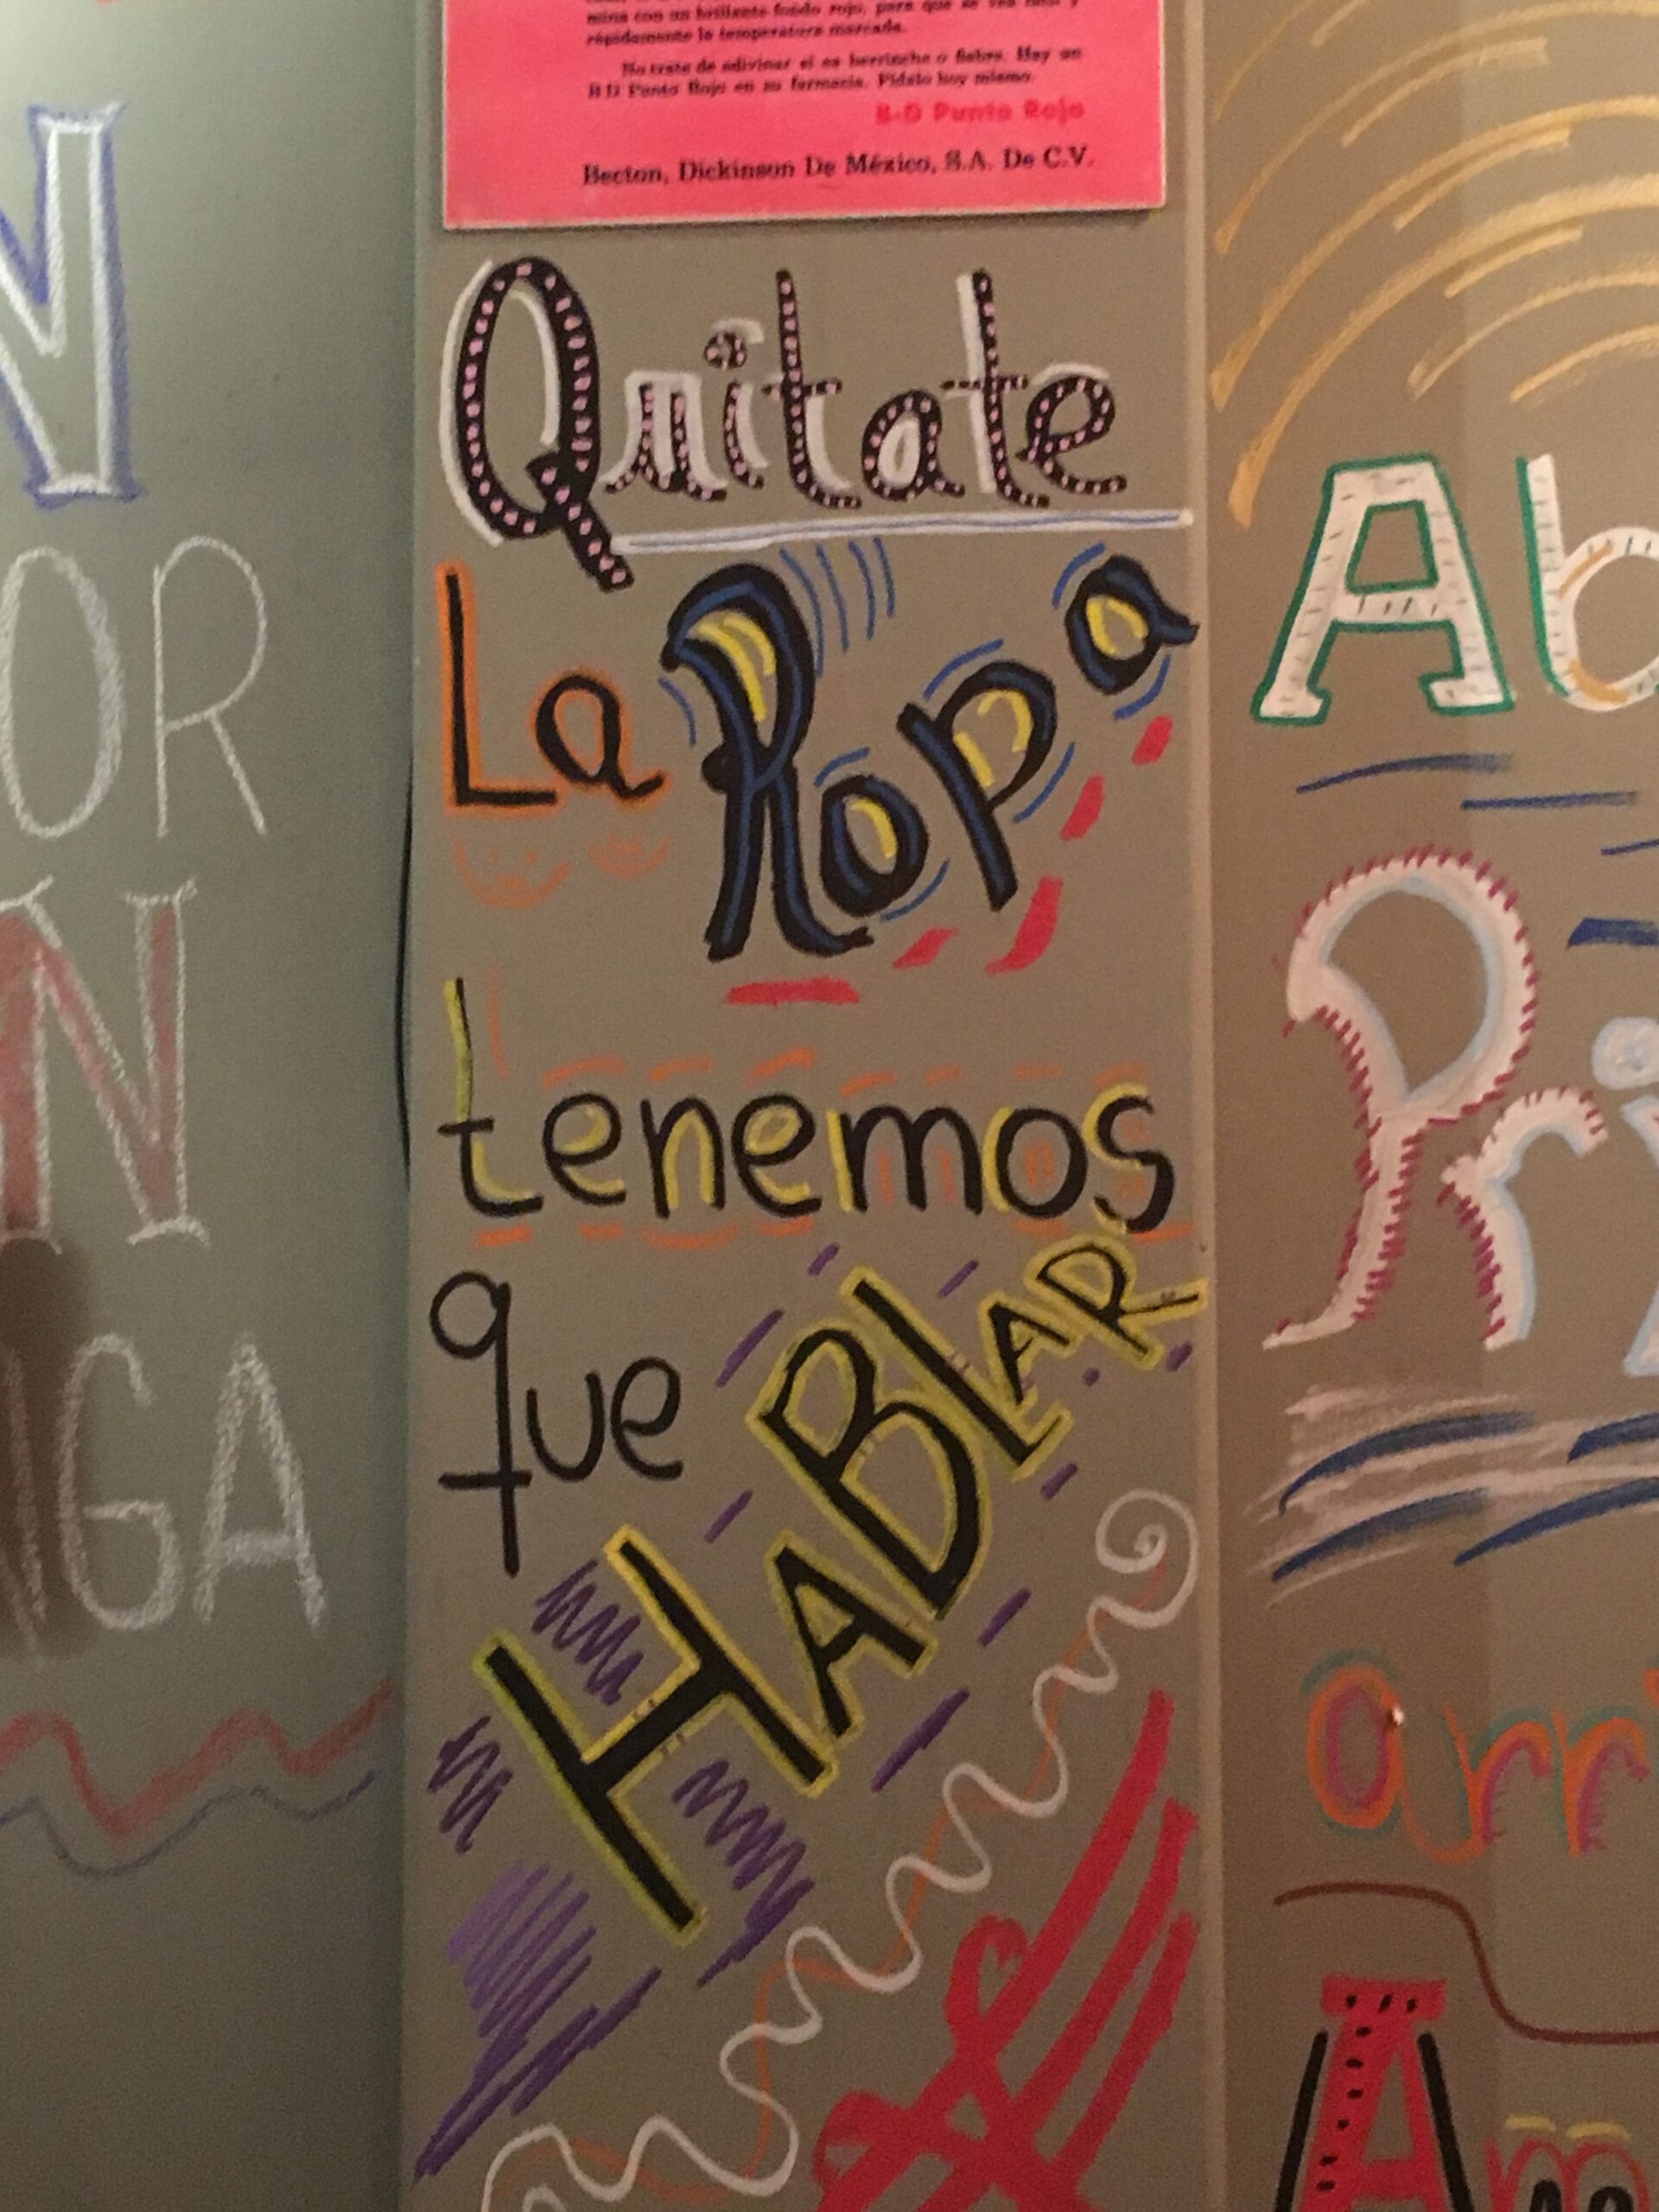 mina con un brillante fondo rojo, para que se vea fácil y
rápidamente la temperatura marcada.
No trate de adivinar si es berrinche o fiebre. Hay un
B D Punto Rojo en su farmacia. Pídalo hoy mismo.
B-D Punto Rojo
Becton, Dickinson De México, S.A. De C.V.
Quitate
La Ropa
tenemos
que HABLAR
N
OR
N
NGA
Ab
Pri
arri
Am